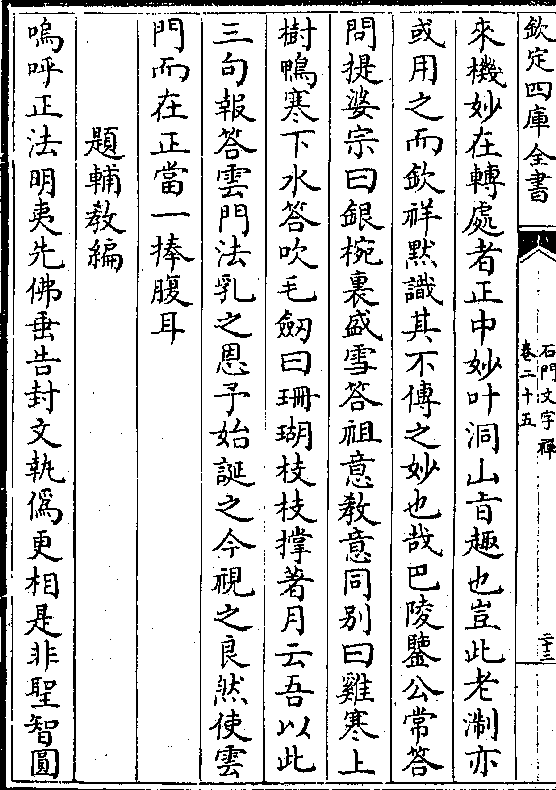 欽定四庫全書
石門文字禪
卷二十五
二十三
來機妙在轉處者正中妙叶洞山旨趣也豈此老淛亦
或用之而欽祥黙識其不傳之妙也哉巴陵鑒公常答
問提婆宗曰銀椀裏盛雪答祖意教意同别曰雞寒上
樹鴨寒下水答吹毛劒曰珊瑚枝枝撑著月云吾以此
三句報答雲門法乳之恩予始誕之今視之良然使雲
門而在正當一捧腹耳
題輔教編
嗚呼正法明夷先佛垂告封文執僞更相是非聖智圓